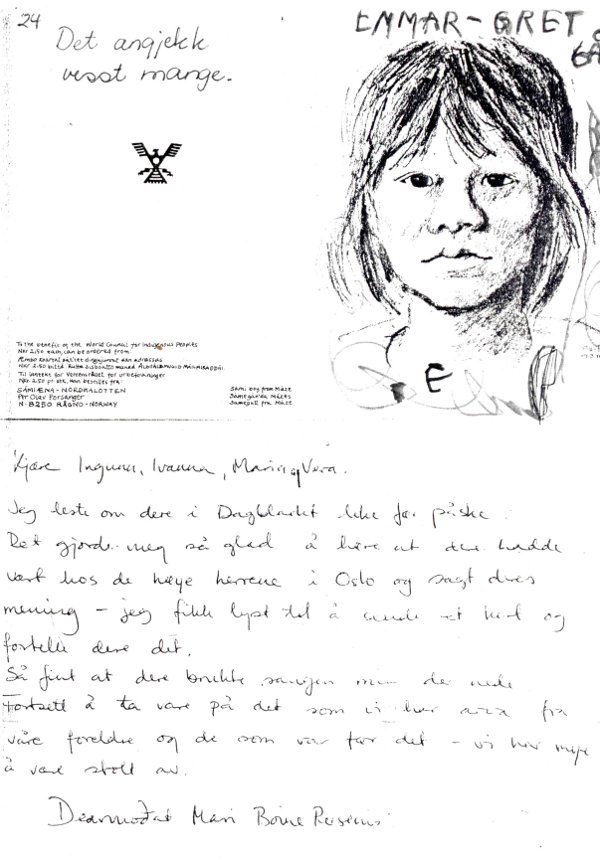 24
Det angjekk
visst mange.
EMMAR-GRET
To the benefit of the World Council for Indigenous Peoples
Nkr 2.50 each, can be ordered from:
Nkr 2.50 pr stk, kan bestilles fra:
SÁMIÆNA-NORDKALOTTEN
Per Olav Porsanger
N-8250 RÅGNO-NORWAY
Sámi boy from Máze
Samegutt fra Máze
E
Kjære Ingunn, Ivanna, Maria og Vera.
Jeg leste om dere i Dagbladet like før påske.
Det gjorde meg så glad å høre at dere hadde
vært hos de høye herrene i Oslo og sagt deres
mening - jeg fikk lyst til å sende et kort og
fortelle dere det.
Så fint at dere brukte sangen min der nede.
Fortsett å ta vare på det som vi har arva fra
våre foreldre og de som var før det - vi har mye
å være stolt av.
Mari Boine Persen